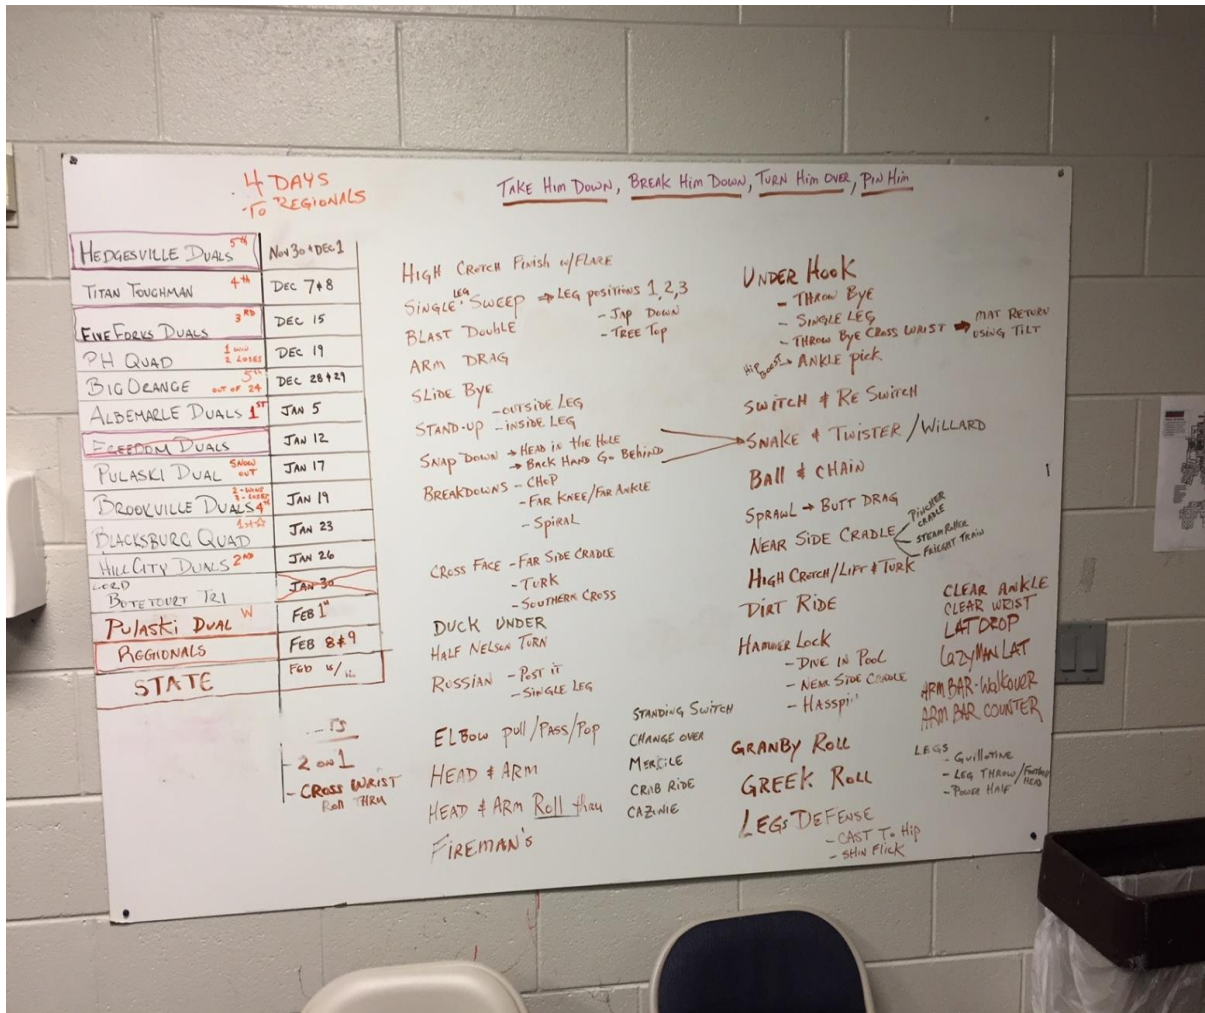 4 DAYS
TO REGIONALS
TAKE HIM DOWN, BREAK HIM DOWN, TURN HIM OVER, PIN HIM
HEDGESVILLE DUALS 5th NOV 30 & DEC 1
TITAN TOUGHMAN 4th DEC 7 & 8
FIVE FORKS DUALS 3RD DEC 15
PH QUAD 1 WIN 2 LOSES DEC 19
BIG ORANGE 5th OUT OF 24 DEC 28 & 29
ALBEMARLE DUALS 1ST JAN 5
FREEDOM DUALS JAN 12
PULASKI DUAL SNOW OUT JAN 17
BROOKVILLE DUALS 2-WINS 3-LOSES 4th JAN 19
BLACKSBURG QUAD 1st ☆ JAN 23
HILL CITY DUALS 2ND JAN 26
LORD BOTETOURT TRI JAN 30
PULASKI DUAL W FEB 1st
REGIONALS FEB 8 & 9
STATE FEB
- 2 ON 1
- CROSS WRIST
ROLL THRU
HIGH CROTCH FINISH W/FLARE
SINGLE LEG SWEEP → LEG POSITIONS 1, 2, 3
- JAP DOWN
BLAST DOUBLE
- TREE TOP
ARM DRAG
SLIDE BYE
- OUTSIDE LEG
STAND-UP - INSIDE LEG
SNAP DOWN → HEAD IN THE HOLE
→ BACK HAND GO BEHIND
BREAKDOWNS - CHOP
- FAR KNEE/FAR ANKLE
- SPIRAL
CROSS FACE - FAR SIDE CRADLE
- TURK
- SOUTHERN CROSS
DUCK UNDER
HALF NELSON TURN
RUSSIAN - POST IT
- SINGLE LEG
ELBOW PULL/PASS/POP
HEAD & ARM
HEAD & ARM ROLL THRU
FIREMAN'S
STANDING SWITCH
CHANGE OVER
MERCILE
CRAB RIDE
CAZINIE
UNDER HOOK
- THROW BYE
- SINGLE LEG
- THROW BYE CROSS WRIST → MAT RETURN USING TILT
HIP BOOST → ANKLE PICK
SWITCH & RE SWITCH
SNAKE & TWISTER/WILLARD
BALL & CHAIN
SPRAWL → BUTT DRAG
NEAR SIDE CRADLE
PINCHER CRADLE
STEAM ROLLER
FRIGHT TRAIN
HIGH CROTCH/LIFT & TURK
DIRT RIDE
HAMMER LOCK
- DIVE IN POOL
- NEAR SIDE CRADLE
GRANBY ROLL
GREEK ROLL
LEGS DEFENSE
- CAST TO HIP
- SHIN FLICK
CLEAR ANKLE
CLEAR WRIST
LAT DROP
LAZY MAN LAT
ARM BAR - WALKOVER
ARM BAR COUNTER
LEGS
- GUILLOTINE
- LEG THROW/ HEAD
- POWER HALF